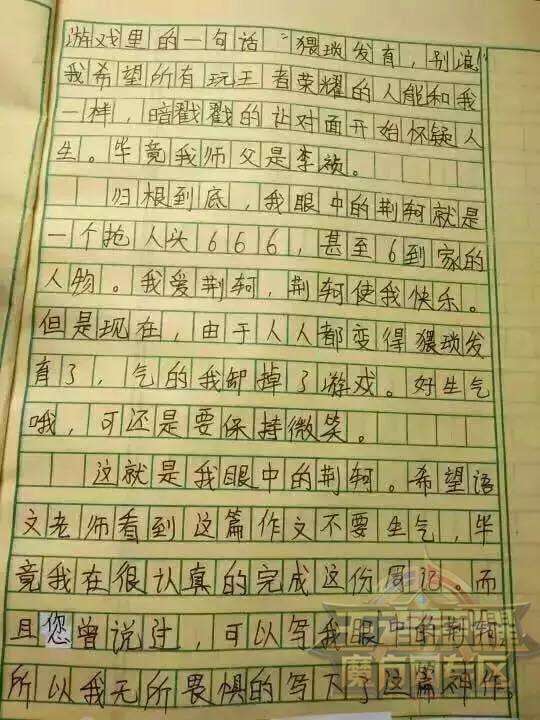 游戏里的一句话"猥琐发育，别浪！"
我希望所有玩王者荣耀的人能和我
一样，暗戳戳的让对面开始怀疑人
生。毕竟我师父是李祯。
归根到底，我眼中的荆轲就是
一个抢人头666，甚至6到家的
人物。我爱荆轲，荆轲使我快乐。
但是现在，由于人人都变得猥琐发
育了，气的我卸掉了游戏。好生气
哦，可还是要保持微笑。
这就是我眼中的荆轲。希望语
文老师看到这篇作文不要生气，毕
竟我在很认真的完成这份周记。而
且您曾说过，可以写我眼中的荆轲。
所以我无所畏惧的写下了这篇神作。